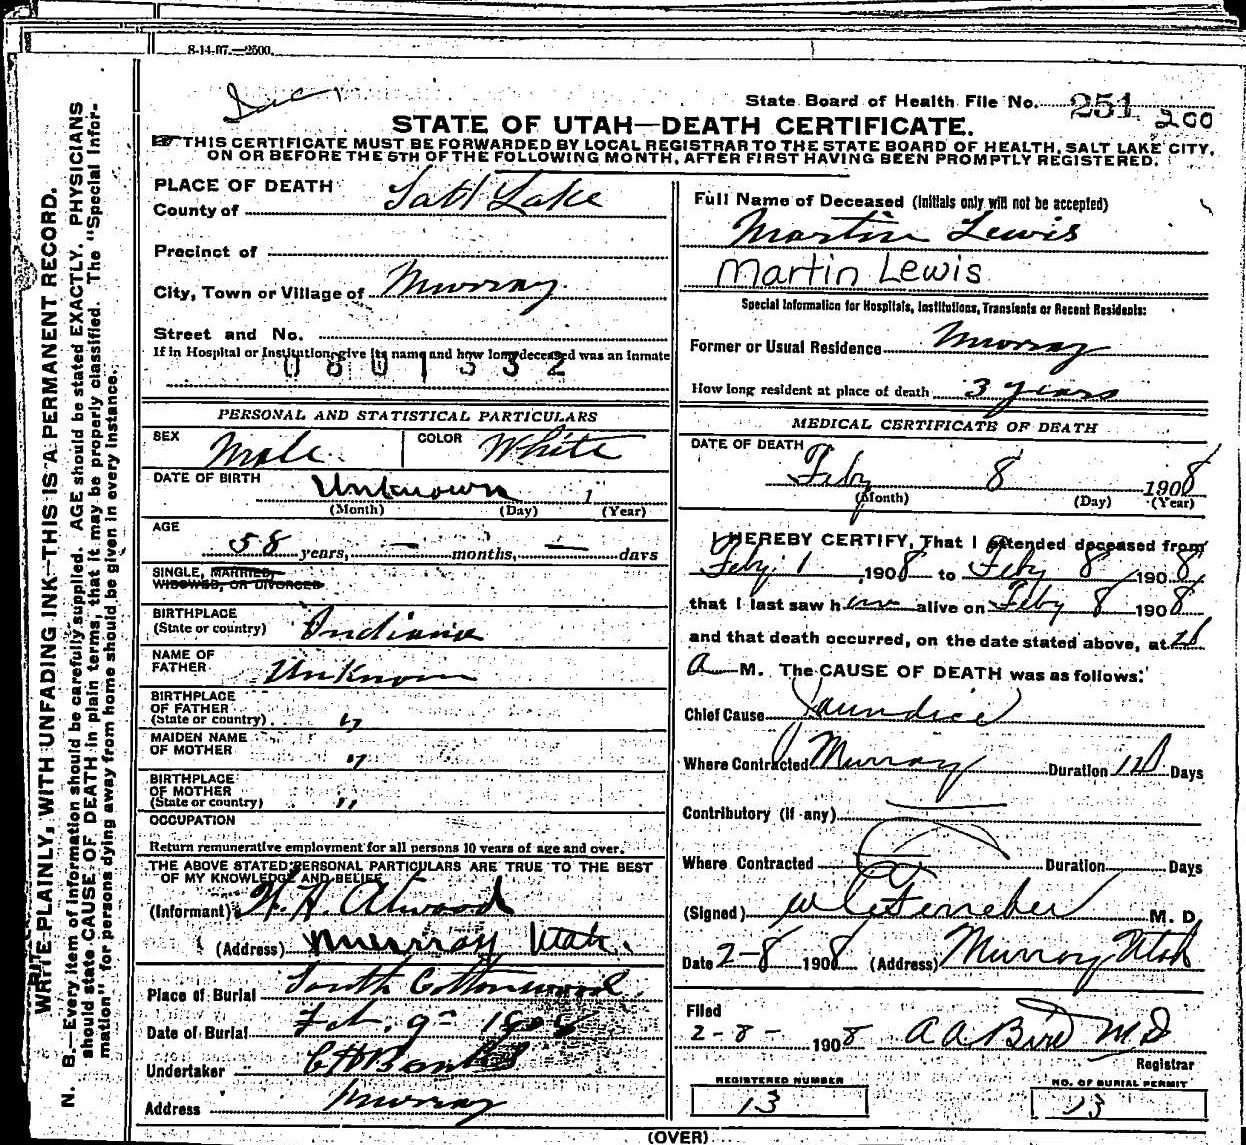 8-14-07.—2500.
State Board of Health File No. 251 200
STATE OF UTAH—DEATH CERTIFICATE.
THIS CERTIFICATE MUST BE FORWARDED BY LOCAL REGISTRAR TO THE STATE BOARD OF HEALTH, SALT LAKE CITY,
ON OR BEFORE THE 5TH OF THE FOLLOWING MONTH, AFTER FIRST HAVING BEEN PROMPTLY REGISTERED.
WRITE PLAINLY, WITH UNFADING INK—THIS IS A PERMANENT RECORD.
N. B.—Every item of information should be carefully supplied. AGE should be stated EXACTLY. PHYSICIANS
should state CAUSE OF DEATH in plain terms, that it may be properly classified. The "Special Infor-
mation" for persons dying away from home should be given in every instance.
PLACE OF DEATH
County of Salt Lake
Precinct of
City, Town or Village of Murray
Street and No.
If in Hospital or Institution, give its name and how long deceased was an inmate
0801332
PERSONAL AND STATISTICAL PARTICULARS
SEX Male COLOR White
DATE OF BIRTH Unknown 1
(Month) (Day) (Year)
AGE
58 years, — months, — days
SINGLE, MARRIED,
WIDOWED, OR DIVORCED
BIRTHPLACE
(State or country) Indiana
NAME OF
FATHER Unknown
BIRTHPLACE
OF FATHER
(State or country) "
MAIDEN NAME
OF MOTHER "
BIRTHPLACE
OF MOTHER
(State or country) "
OCCUPATION
Return remunerative employment for all persons 10 years of age and over.
THE ABOVE STATED PERSONAL PARTICULARS ARE TRUE TO THE BEST
OF MY KNOWLEDGE AND BELIEF
(Informant) H. Atwood
(Address) Murray Utah.
Place of Burial South Cottonwood
Date of Burial Feb. 9 1908
Undertaker
Address Murray
Full Name of Deceased (Initials only will not be accepted)
Martin Lewis
Martin Lewis
Special Information for Hospitals, Institutions, Transients or Recent Residents:
Former or Usual Residence Murray
How long resident at place of death 3 years
MEDICAL CERTIFICATE OF DEATH
DATE OF DEATH
Feby 8 1908
(Month) (Day) (Year)
I HEREBY CERTIFY, That I attended deceased from
Feby. 1, 1908 to Feby 8 1908
that I last saw him alive on Feby 8 1908
and that death occurred, on the date stated above, at
a M. The CAUSE OF DEATH was as follows:
Chief Cause Jaundice
Where Contracted Murray Duration Days
Contributory (if any)
Where Contracted Duration Days
(Signed) M. D.
Date 2-8 1908 (Address) Murray Utah
Filed
2-8- 1908 A A Bird M D
Registrar
REGISTERED NUMBER
13
NO. OF BURIAL PERMIT
13
(OVER)